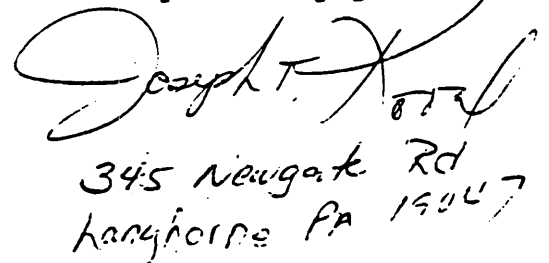 Joseph T.
345 Newgate Rd
Langhorne PA 19047